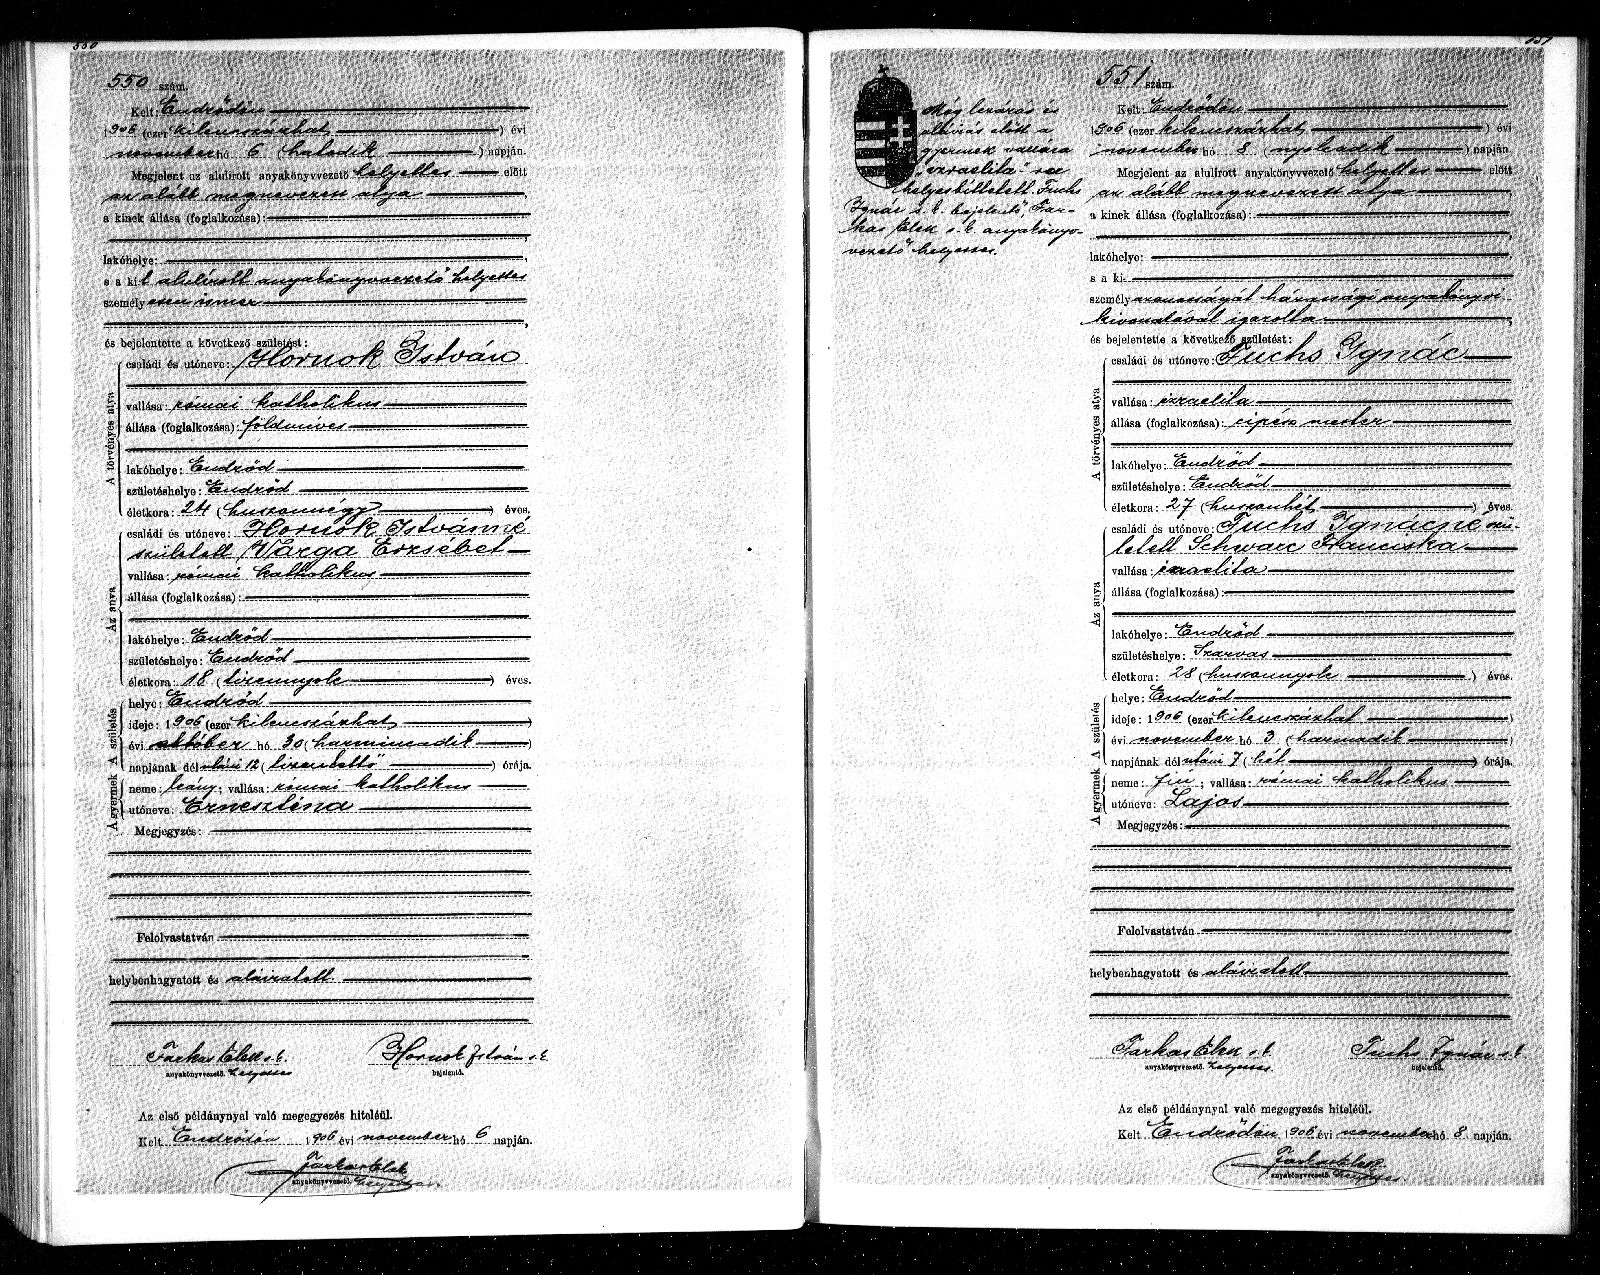 550
550 szám.
Kelt Endrődön
1906 (ezer kilencszázhat) évi
november hó 6 (hatodik) napján.
Megjelent az alulirott anyakönyvvezető helyettes előtt
az alább megnevezett atya
a kinek állása (foglalkozása):
lakóhelye:
s a kit alulírott anyakönyvvezető helyettes
személyesen ismer
és bejelentette a következő születést:
A törvényes atya
családi és utóneve: Hornok István
vallása: római katholikus
állása (foglalkozása): földmives
lakóhelye: Endrőd
születéshelye: Endrőd
életkora: 24 (huszonnégy) éves.
Az anya
családi és utóneve: Hornok Istvánné
született Varga Erzsébet
vallása: római katholikus
állása (foglalkozása):
lakóhelye: Endrőd
születéshelye: Endrőd
életkora: 18 (tizennyolc) éves.
A születés
helye: Endrőd
ideje: 1906 (ezer kilencszázhat)
évi október hó 30 (harmincadik)
napjának dél utáni 12 (tizenkettő) órája.
A gyermek
neme: leány; vallása: római katholikus
utóneve: Ernesztina
Megjegyzés:
Felolvastatván
helybenhagyatott és aláiratott.
Farkas Elek s. k.
anyakönyvvezető helyettes
Hornok István s. k.
bejelentő.
Az első példánynyal való megegyezés hiteléül.
Kelt Endrődön 1906 évi november hó 6 napján.
Farkas Elek
anyakönyvvezető helyettes
551
551 szám.
Még lezárás és
aláirás előtt a
gyermek vallása
"izraelita"-ra
helyesbittetett. Fuchs
Ignác s. k. bejelentő, Far-
kas Elek s. k. anyakönyv-
vezető helyettes.
Kelt Endrődön
1906 (ezer kilencszázhat) évi
november hó 8 (nyolcadik) napján.
Megjelent az alulirott anyakönyvvezető helyettes előtt
az alább megnevezett atya
a kinek állása (foglalkozása):
lakóhelye:
s a ki-
személyazonosságát házassági anyakönyvi
kivonatával igazolta
és bejelentette a következő születést:
A törvényes atya
családi és utóneve: Fuchs Ignác
vallása: izraelita
állása (foglalkozása): cipész mester
lakóhelye: Endrőd
születéshelye: Endrőd
életkora: 27 (huszonhét) éves.
Az anya
családi és utóneve: Fuchs Ignácné szü-
letett Schwarc Franciska
vallása: izraelita
állása (foglalkozása):
lakóhelye: Endrőd
születéshelye: Szarvas
életkora: 28 (huszonnyolc) éves.
A születés
helye: Endrőd
ideje: 1906 (ezer kilencszázhat)
évi november hó 3 (harmadik)
napjának dél utáni 7 (hét) órája.
A gyermek
neme: fiu; vallása: római katholikus
utóneve: Lajos
Megjegyzés:
Felolvastatván
helybenhagyatott és aláiratott
Farkas Elek s. k.
anyakönyvvezető helyettes.
Fuchs Ignác s. k.
bejelentő.
Az első példánynyal való megegyezés hiteléül.
Kelt Endrődön 1906 évi november hó 8 napján.
Farkas Elek
anyakönyvvezető helyettes